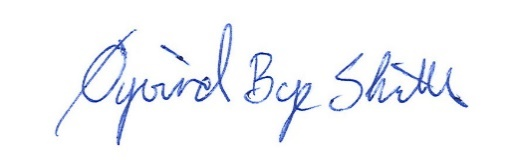 Øyvind Bye Skille